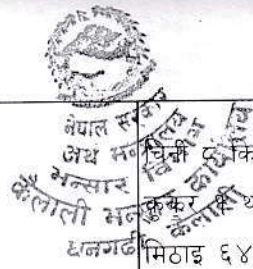 नेपाल सरकार
अर्थ मन्त्रालय
भन्सार विभाग
कैलाली भन्सार कार्यालय
कैलाली
धनगढी
चिनी ६ कि
कुकर १ थ
मिठाइ ६४